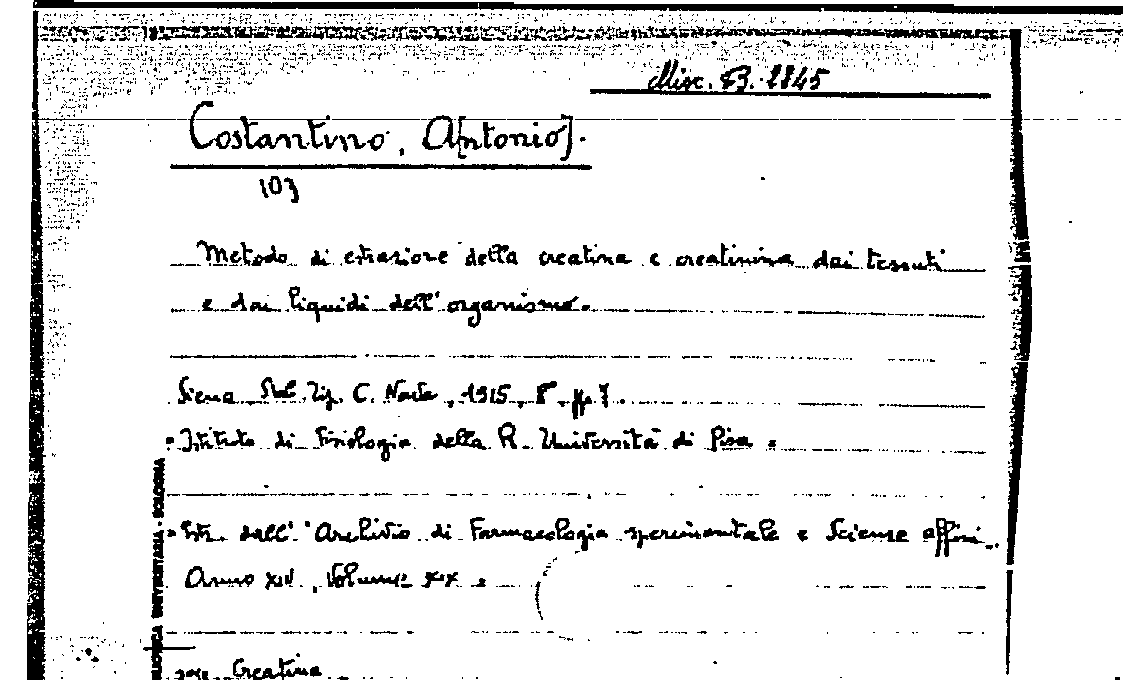 Misc. B. 2845
Costantino, A[ntonio].
103
Metodo di estrazione della creatina e creatinina dai tessuti
e dai liquidi dell'organismo.
Siena, Stab. Tip. C. Nava, 1915, 8°, pp. 7.
"Istituto di Fisiologia della R. Università di Pisa"
"Estr. dall' "Archivio di Farmacologia sperimentale e Scienze affini"
Anno XIV, Volume XIX"
Creatina
BIBLIOTECA UNIVERSITARIA - BOLOGNA